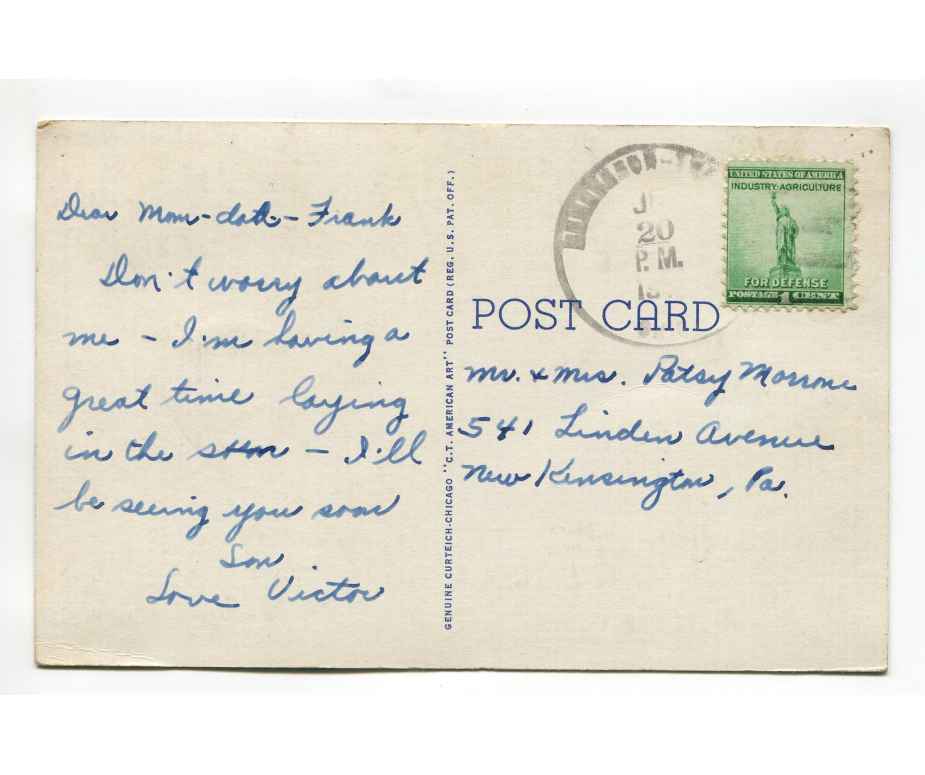 Dear Mom-dad-Frank
Don't worry about
me - I'm having a
great time laying
in the sun - I'll
be seeing you soon
Son
Love Victor
GENUINE CURTEICH-CHICAGO "C.T. AMERICAN ART" POST CARD (REG. U.S. PAT. OFF.)
20
P.M.
UNITED STATES OF AMERICA
INDUSTRY-AGRICULTURE
FOR DEFENSE
POSTAGE 1 CENT
POST CARD
Mr. & Mrs. Patsy Morrone
541 Linden Avenue
New Kensington, Pa.